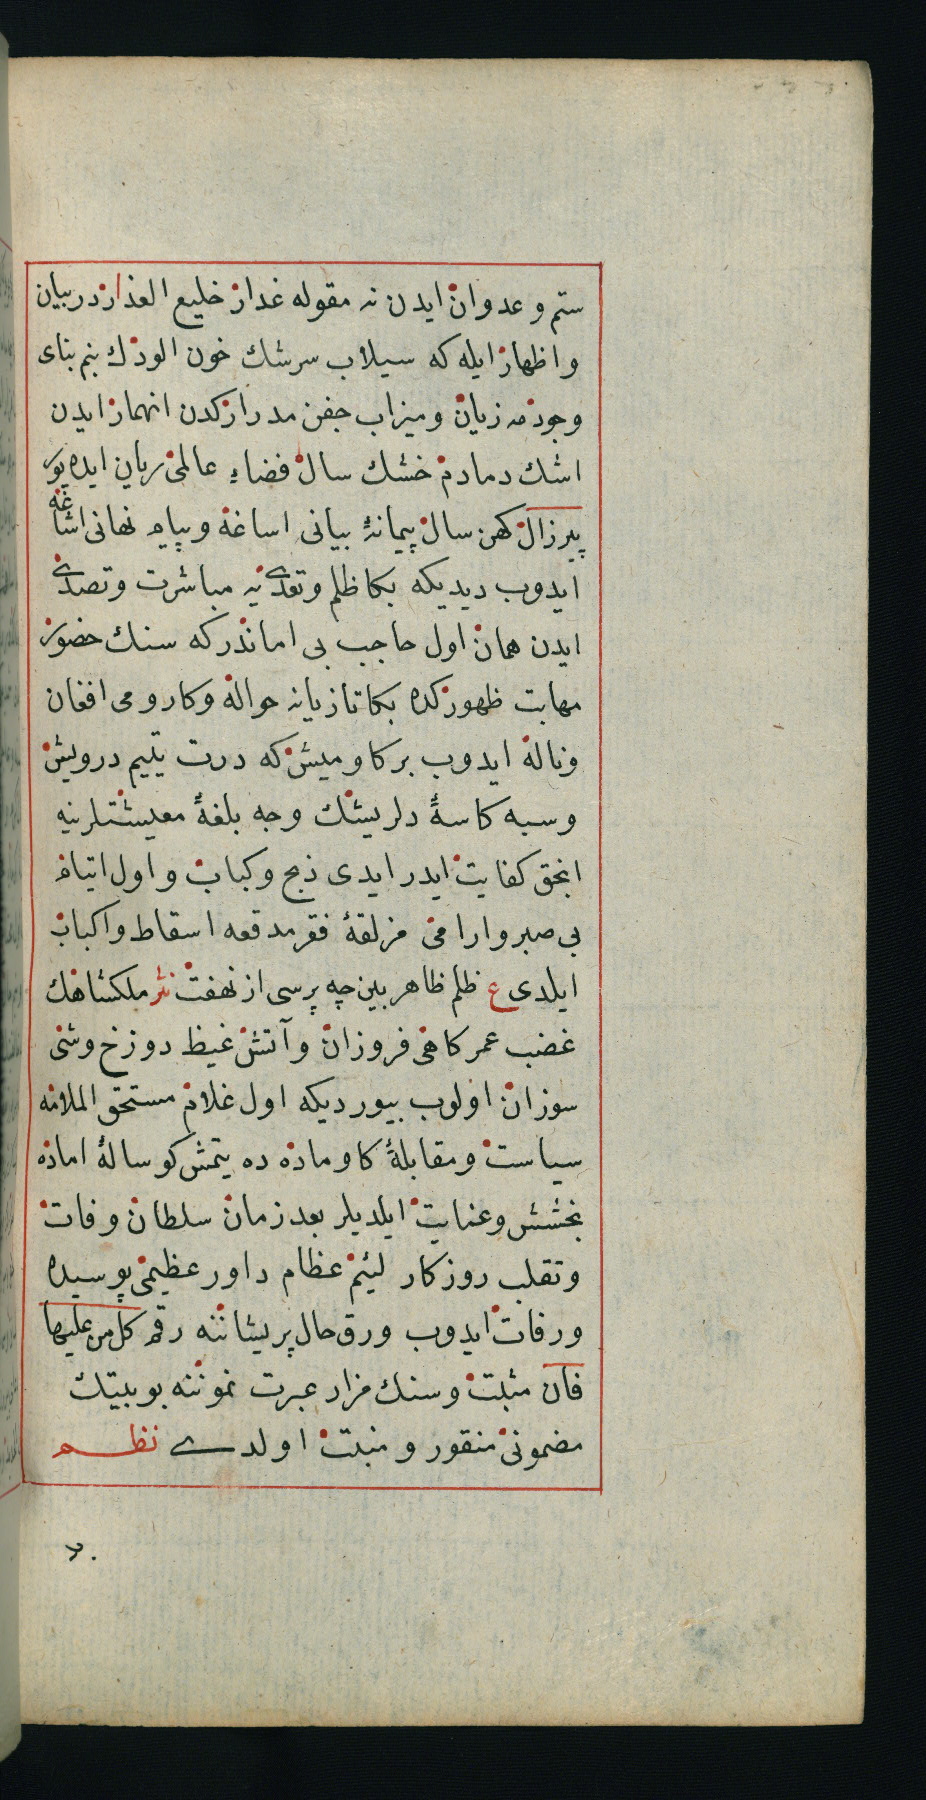 ستم و عدوان ايدن نه مقوله غدار خليع العذاردر بيان
و اظهار ايله كه سيلاب سرشك خون الودك بنم بناى
وجودمه زيان و ميزاب جفن مدراركدن انهمار ايدن
اشك دمادم خشك سال فضاء عالمى ريان ايده يور
پيرزال كهن سال پيمانهٔ بيانى اساغه و پيام نهانى اشاغه
ايدوب ديديكه بكا ظلم و تعدّى‌يه مباشرت و تصدّى
ايدن همان اول حاجب بى اماندر كه سنك حضور
مهابت ظهوركده بكا تازيانه حواله و كارومى افغان
و ناله ايدوب بر كاوميش كه درت يتيم درويش
و سبه كاسهٔ دلريشك وجه بلغهٔ معيشتلرنيه
انجق كفايت ايدر ايدى ذبح و كباب و اول ايتام
بى صبر و ارامى مزلقهٔ فقر مدقعه اسقاط و اكباب
ايلدى ع ظلم ظاهر بين چه پرسى از نهفت نثر ملكشاهك
غضب عمركاهى فروزان و آتش غيظ دوزخ وشى
سوزان اولوب بيورديكه اول غلام مستحق الملامه
سياست و مقابلهٔ كاوماده ده يتمش كوسالهٔ اماده
بخشش و عنايت ايلديلر بعد زمان سلطان وفات
و تقلب روزكار لئيم عظام داور عظيمى پوسيده
و رفات ايدوب ورق حال پريشاننه رقم كل من عليها
فان مثبت و سنك مزار عبرت نموننه بو بيتك
مضمونى منقور و منبت اولدى نظم